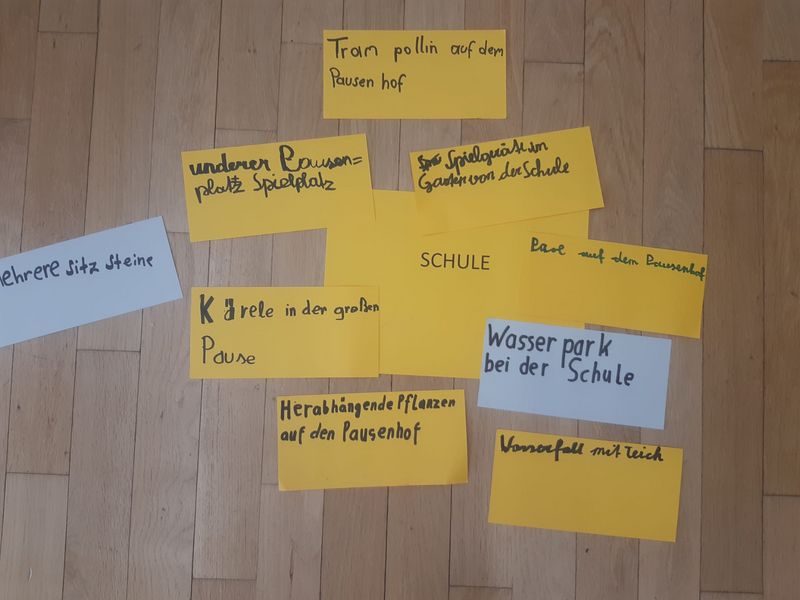 Trampollin auf dem
Pausen hof
underer Pausen=
platz Spielplatz
Spielgeräte im
Garten von der Schule
SCHULE
auf dem Pausenhof
mehrere Sitz Steine
Kärele in der großen
Pause
Wasserpark
bei der Schule
Herabhängende Pflanzen
auf den Pausenhof
Wasserfall mit Teich